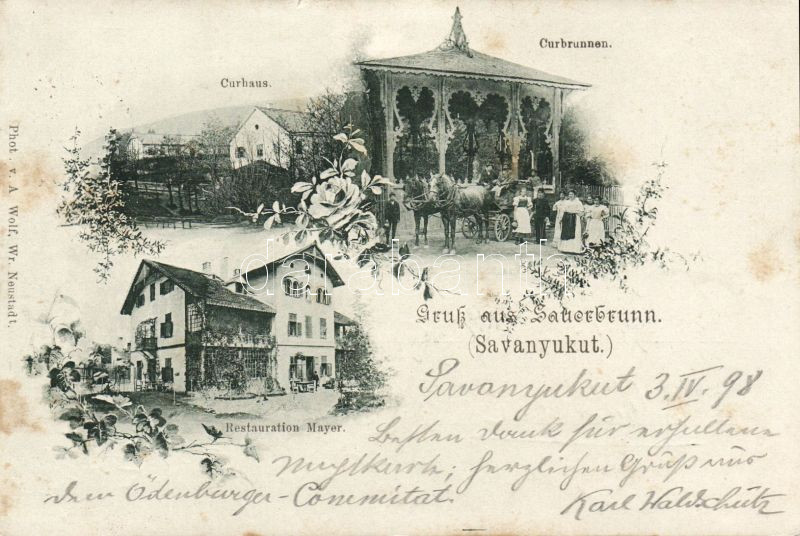 Curbrunnen.
Curhaus.
Phot. v. A. Wolf, Wr. Neustadt.
darabanth
Gruß aus Sauerbrunn.
(Savanyukut.)
Restauration Mayer.
Savanyukut 3.IV.98
Besten Dank für erhaltene
herzlichen Gruß aus
dem Ödenburger-Commitat.
Karl Waldschütz